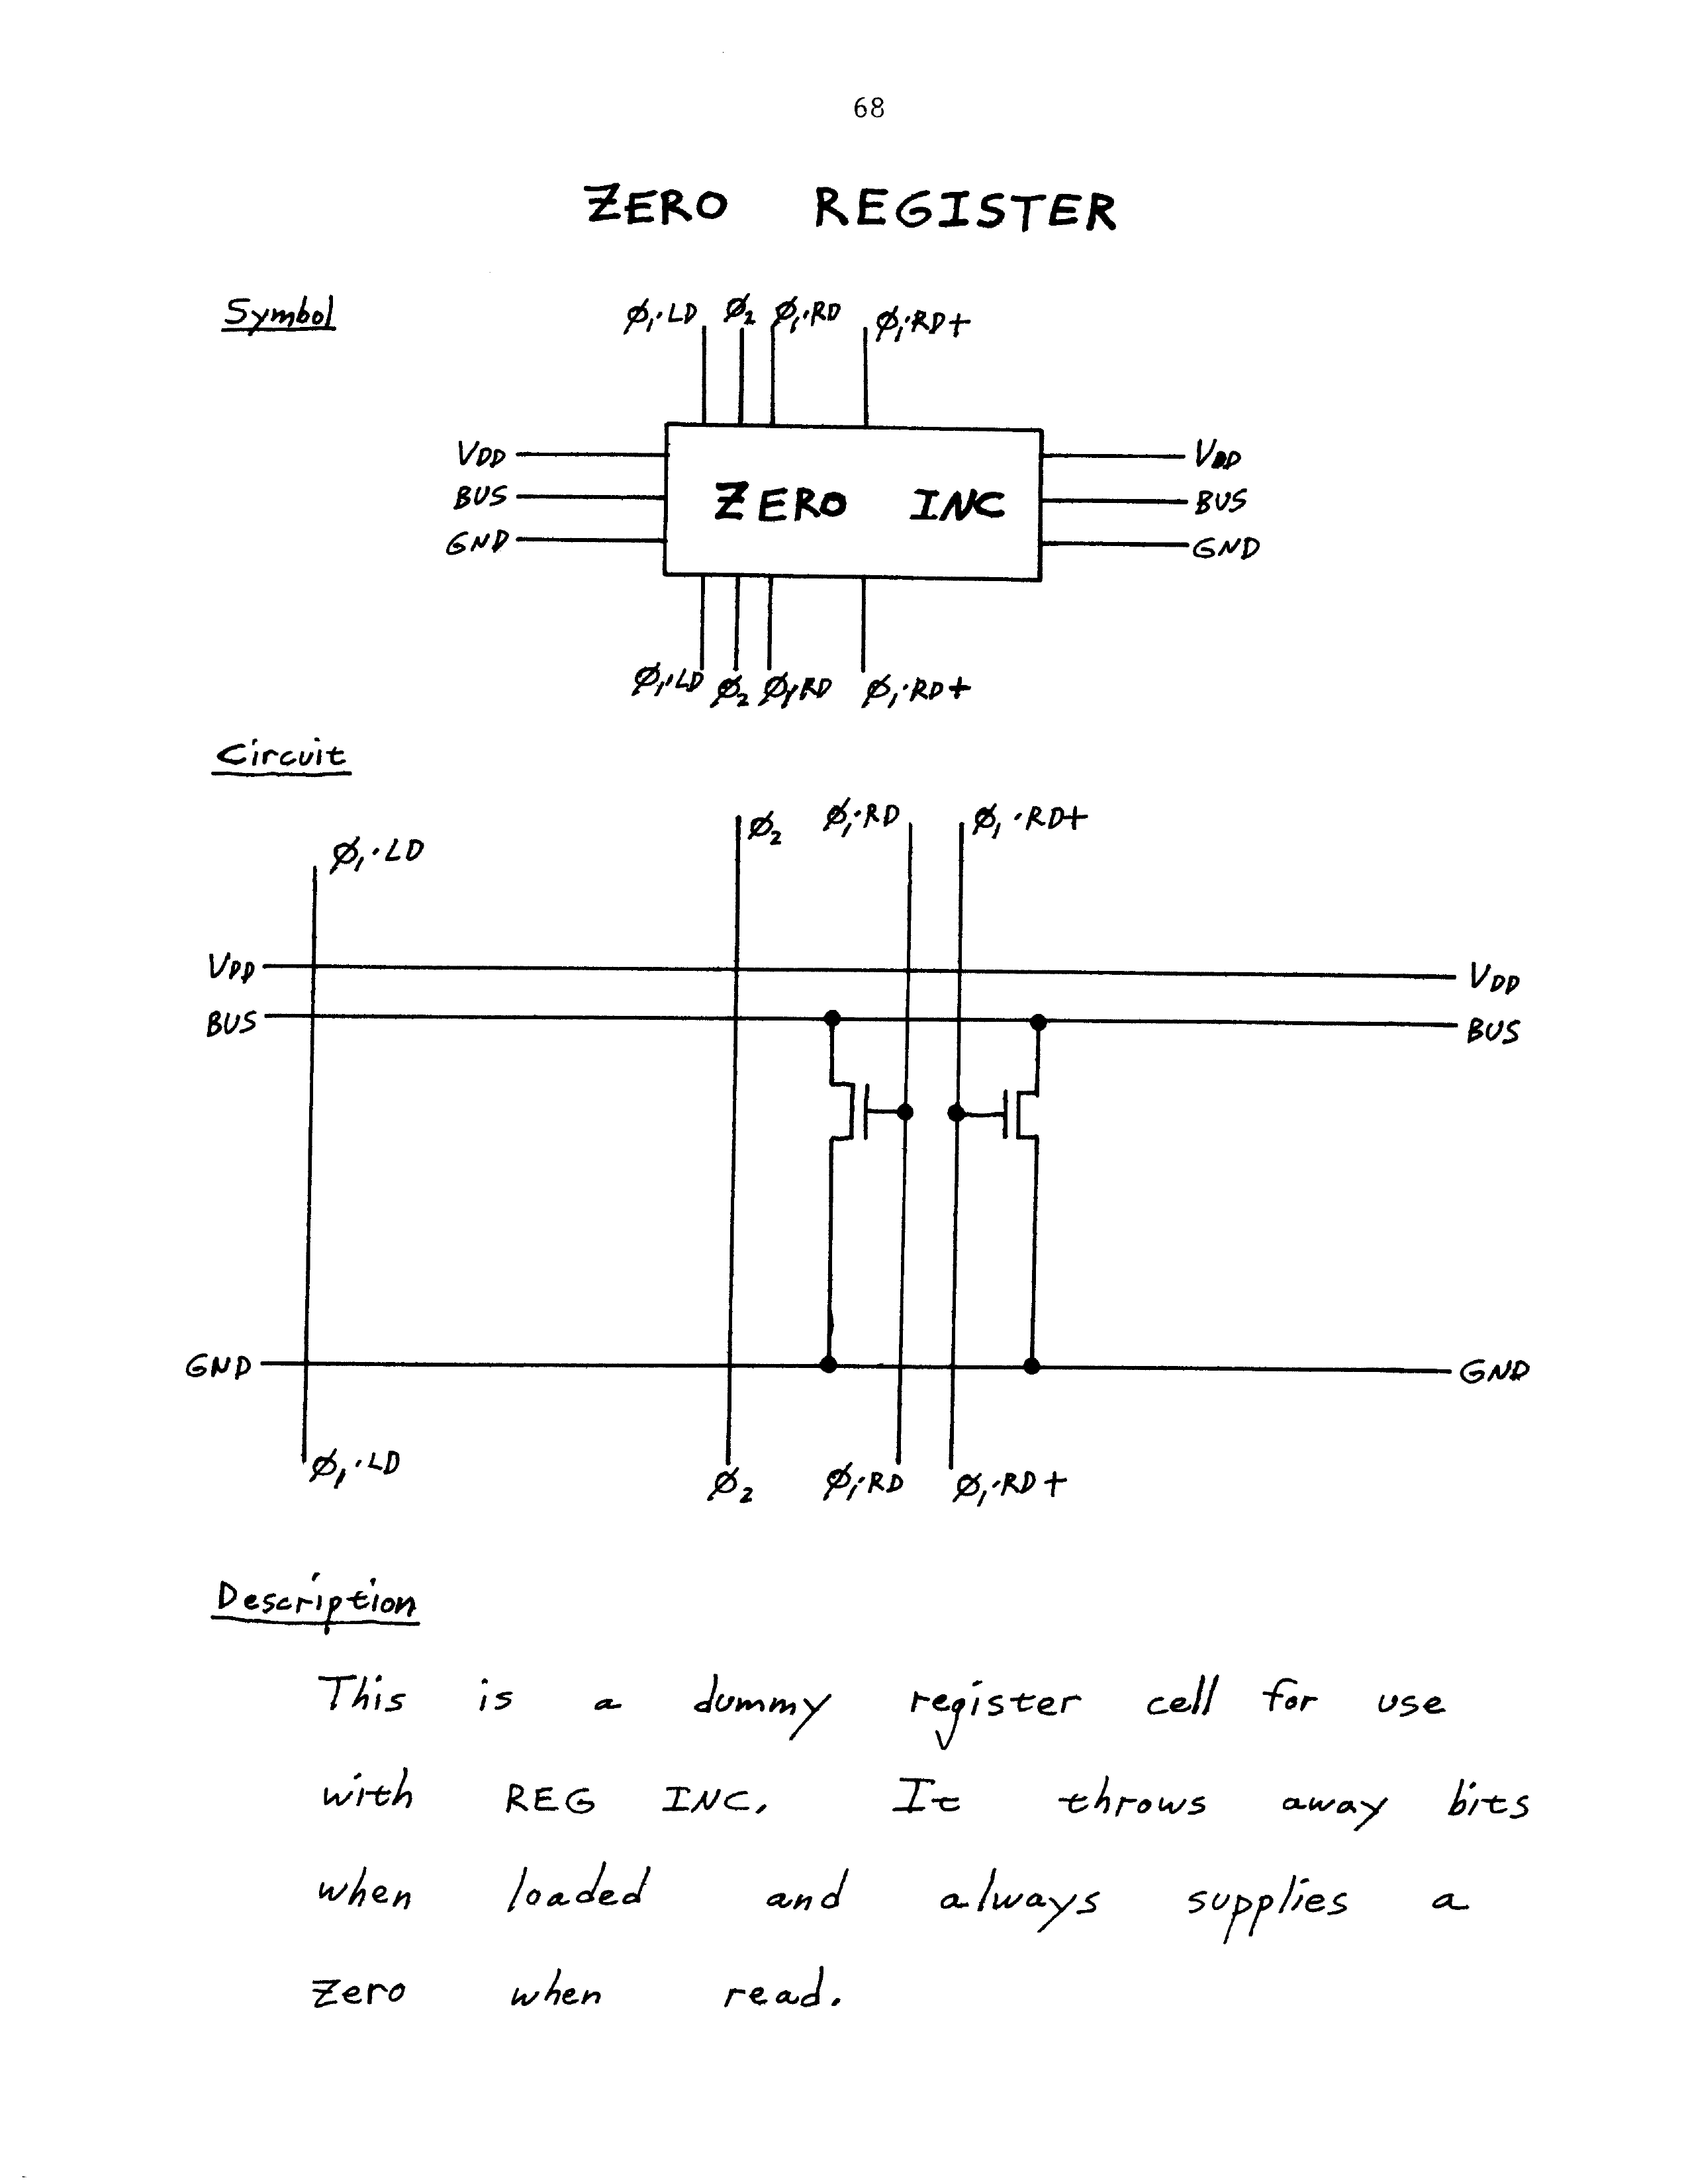 68
ZERO REGISTER
Symbol
Ø₁·LD Ø₂ Ø₁·RD Ø₁·RD+
VDD VDD
BUS ZERO INC BUS
GND GND
Ø₁·LD Ø₂ Ø₁·RD Ø₁·RD+
Circuit
Ø₁·LD Ø₂ Ø₁·RD Ø₁·RD+
VDD VDD
BUS BUS
GND GND
Ø₁·LD Ø₂ Ø₁·RD Ø₁·RD+
Description
This is a dummy register cell for use
with REG INC. It throws away bits
when loaded and always supplies a
zero when read.